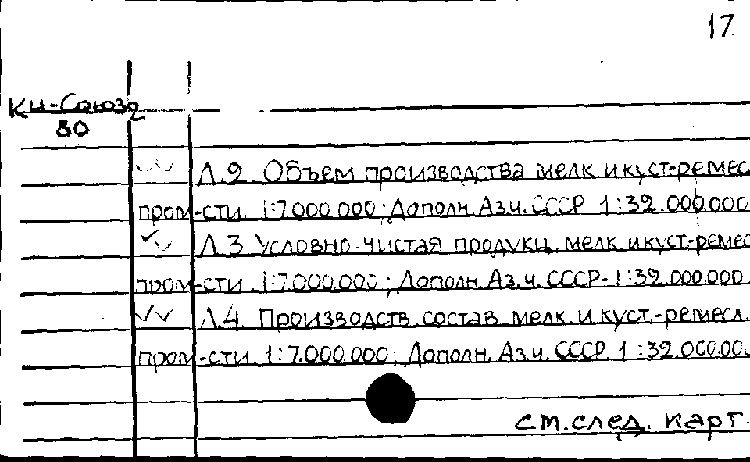 17
Кн-Союза
80
Л.2 Объем производства мелк. и куст-ремес
пром-сти 1:7.000.000; Дополн. Аз.ч. СССР 1:32.000.000
Л.3 Условно-чистая продукц. мелк и куст-ремес
пром-сти 1:7.000.000; Дополн. Аз.ч. СССР-1:32.000.000
Л.4. Производств. состав мелк. и куст.-ремесл.
пром-сти 1:7.000.000; Дополн. Аз.ч. СССР 1:32.000.00
см. след. карт